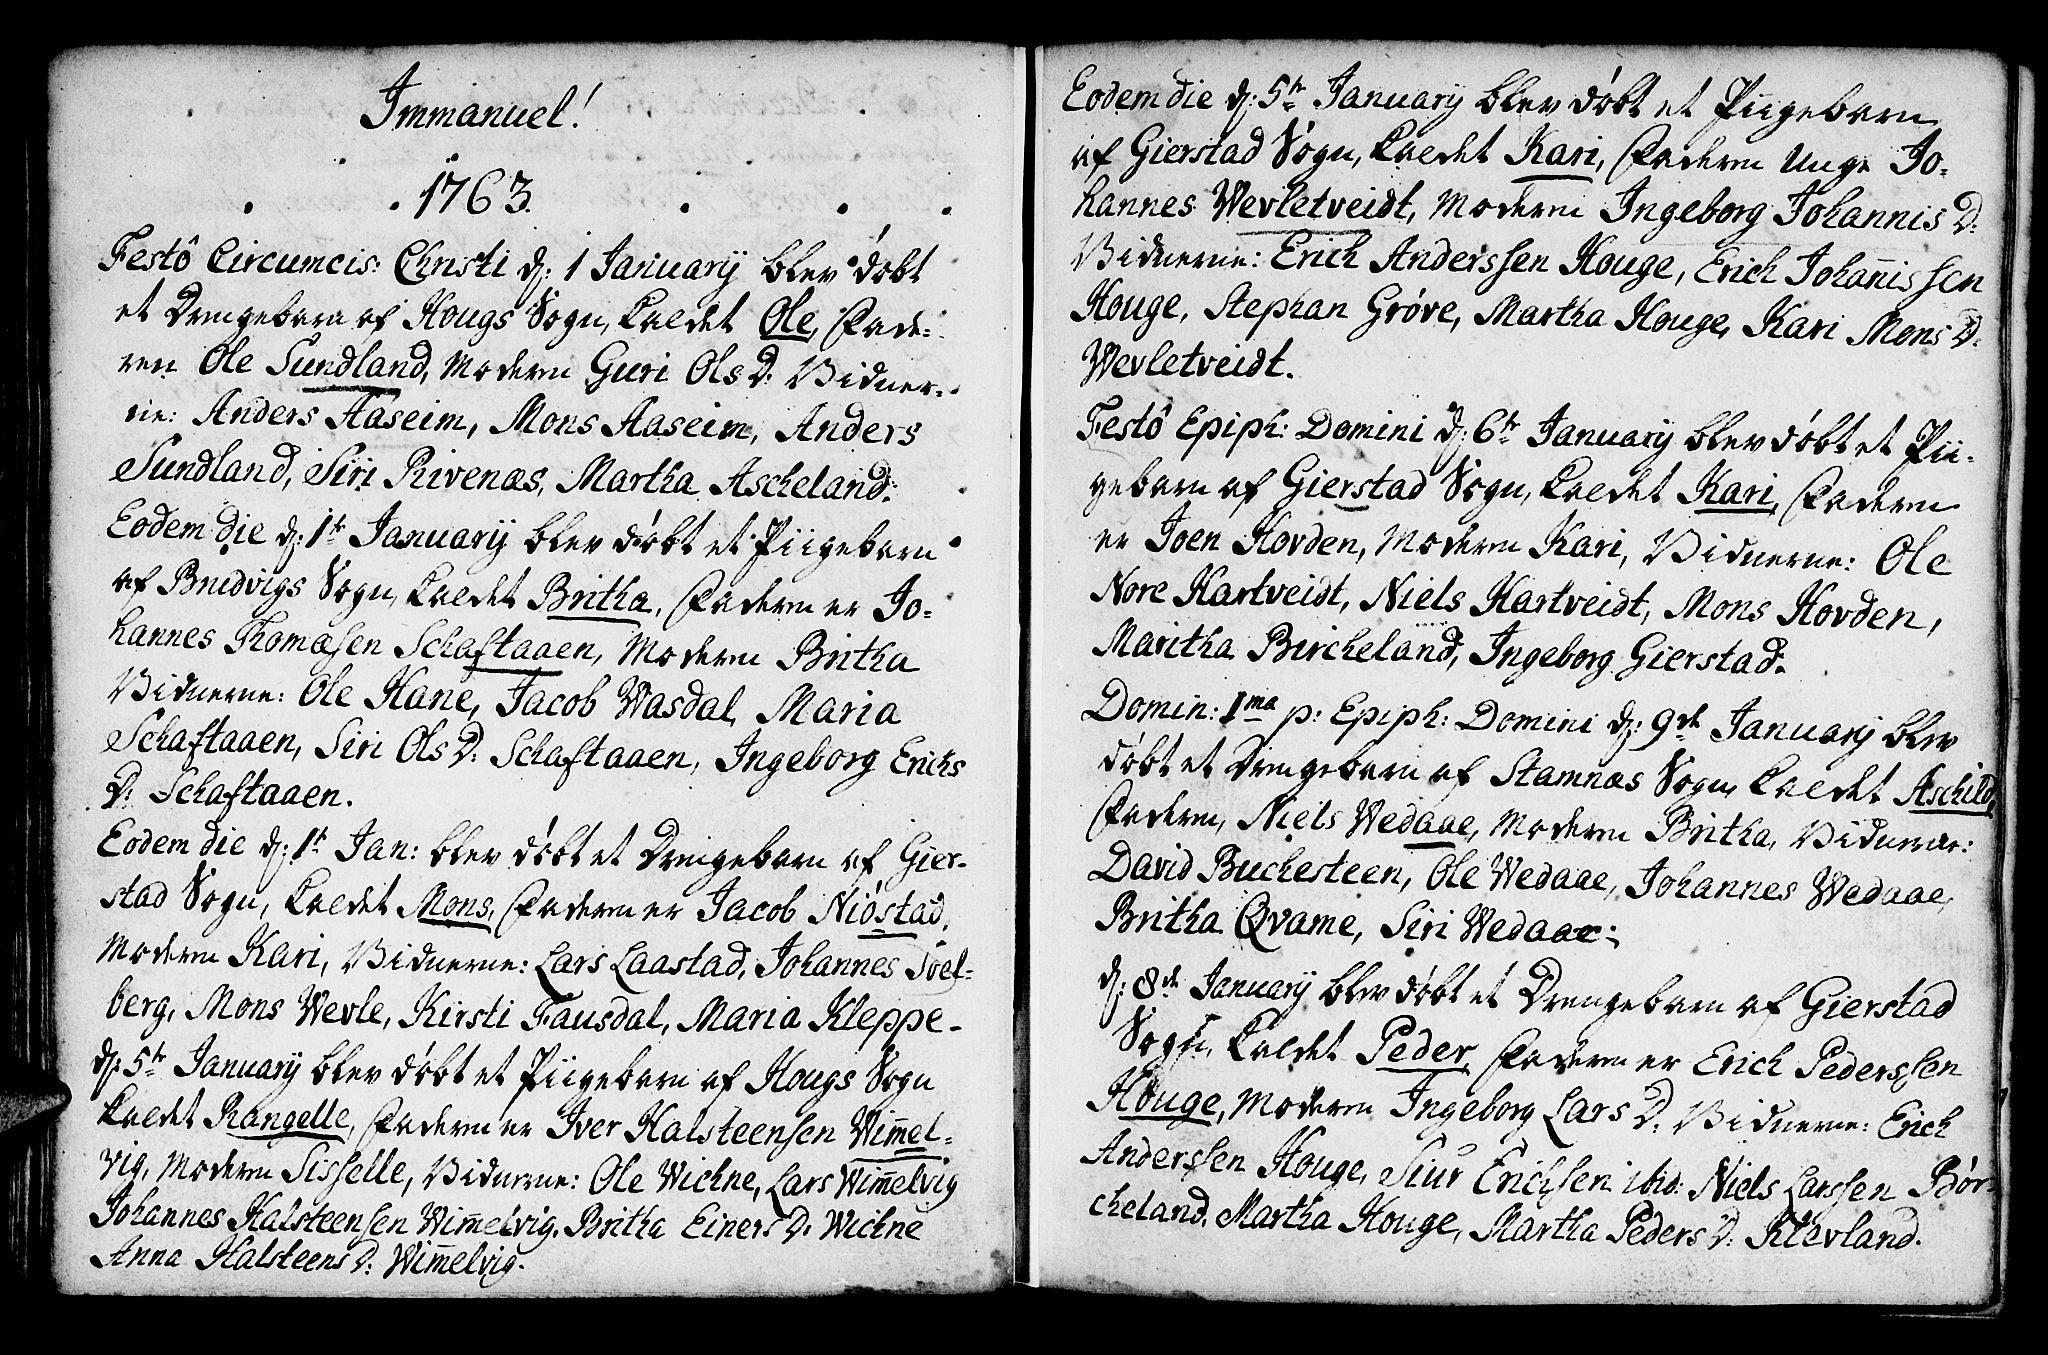 Immanuel!
1763.
Festô Circumcis: Christi d: 1 Januarij blev døbt
et Drengebarn af Hougs Sogn, kaldet Ole, Fade-
ren Ole Sundland, Moderen Guri Ols D: Vidner-
ne: Anders Aaseim, Mons Aaseim, Anders
Sundland, Siri Rivenæs, Martha Ascheland.
Eodem die d: 1te Januarij blev døbt et Piigebarn
af Bridvigs Sogn, kaldet Britha, Faderen er Jo-
hannes Thomæsen Schaftaaen, Moderen Britha
Vidnerne: Ole Hane, Jacob Wasdal, Maria
Schaftaaen, Siri Ols D: Schaftaaen, Ingeborg Erichs
D: Schaftaaen.
Eodem die d: 1te Jan: blev døbt et Drengebarn af Gier-
stad Sogn, kaldet Mons, Faderen er Jacob Niøstad,
Moderen Kari, Vidnerne: Lars Laastad, Johannes Toel-
berg, Mons Wevle, Kirsti Fausdal, Maria Kleppe-
d: 5te Januarij blev døbt et Piigebarn af Hougs Sogn
kaldet Rangelle, Faderen er Iver Halsteensen Wim̅el-
vig, Moderen Sisselle, Vidnerne: Ole Wichne, Lars Wim̅elvig
Johannes Halsteensen Wim̅elvig, Britha Einers D: Wichne
Anna Halsteens D: Wim̅elvig.
Eodem die d: 5te Januarij blev døbt et Piigebarn
af Gierstad Sogn, kaldet Kari, Faderen Unge Jo-
hannes Wevletveidt, Moderen Ingeborg Johannis D:
Vidnerne: Erich Anderssen Houge, Erich Johan̅issen
Houge, Stephan Grøve, Martha Houge, Kari Mons D:
Wevletveidt.
Festô Epiph: Domini d: 6te Januarij blev døbt et Pii-
gebarn af Gierstad Sogn, kaldet Kari, Faderen
er Joen Hovden, Moderen Kari, Vidnerne: Ole
Nore Hartveidt, Niels Hartveidt, Mons Hovden,
Maritha Bircheland, Ingeborg Gierstad.
Domin: 1ma p: Epiph: Domini d: 9de Januarij blev
døbt et Drengebarn af Stamnæs Sogn, kaldet Aschild,
Faderen, Niels Wedaae, Moderen Britha, Vidnerne:
David Buchesteen, Ole Wedaae, Johannes Wedaae,
Britha Qvame, Siri Wedaae:
d: 8de Januarij blev døbt et Drengebarn af Gierstad
Sogn, kaldet Peder, Faderen er Erich Pederssen
Houge, Moderen Ingeborg Lars D: Vidnerne: Erich
Anderssen Houge, Siur Erichsen ibid: Niels Larssen Bør-
cheland, Martha Houge, Martha Peders D: Klevland.